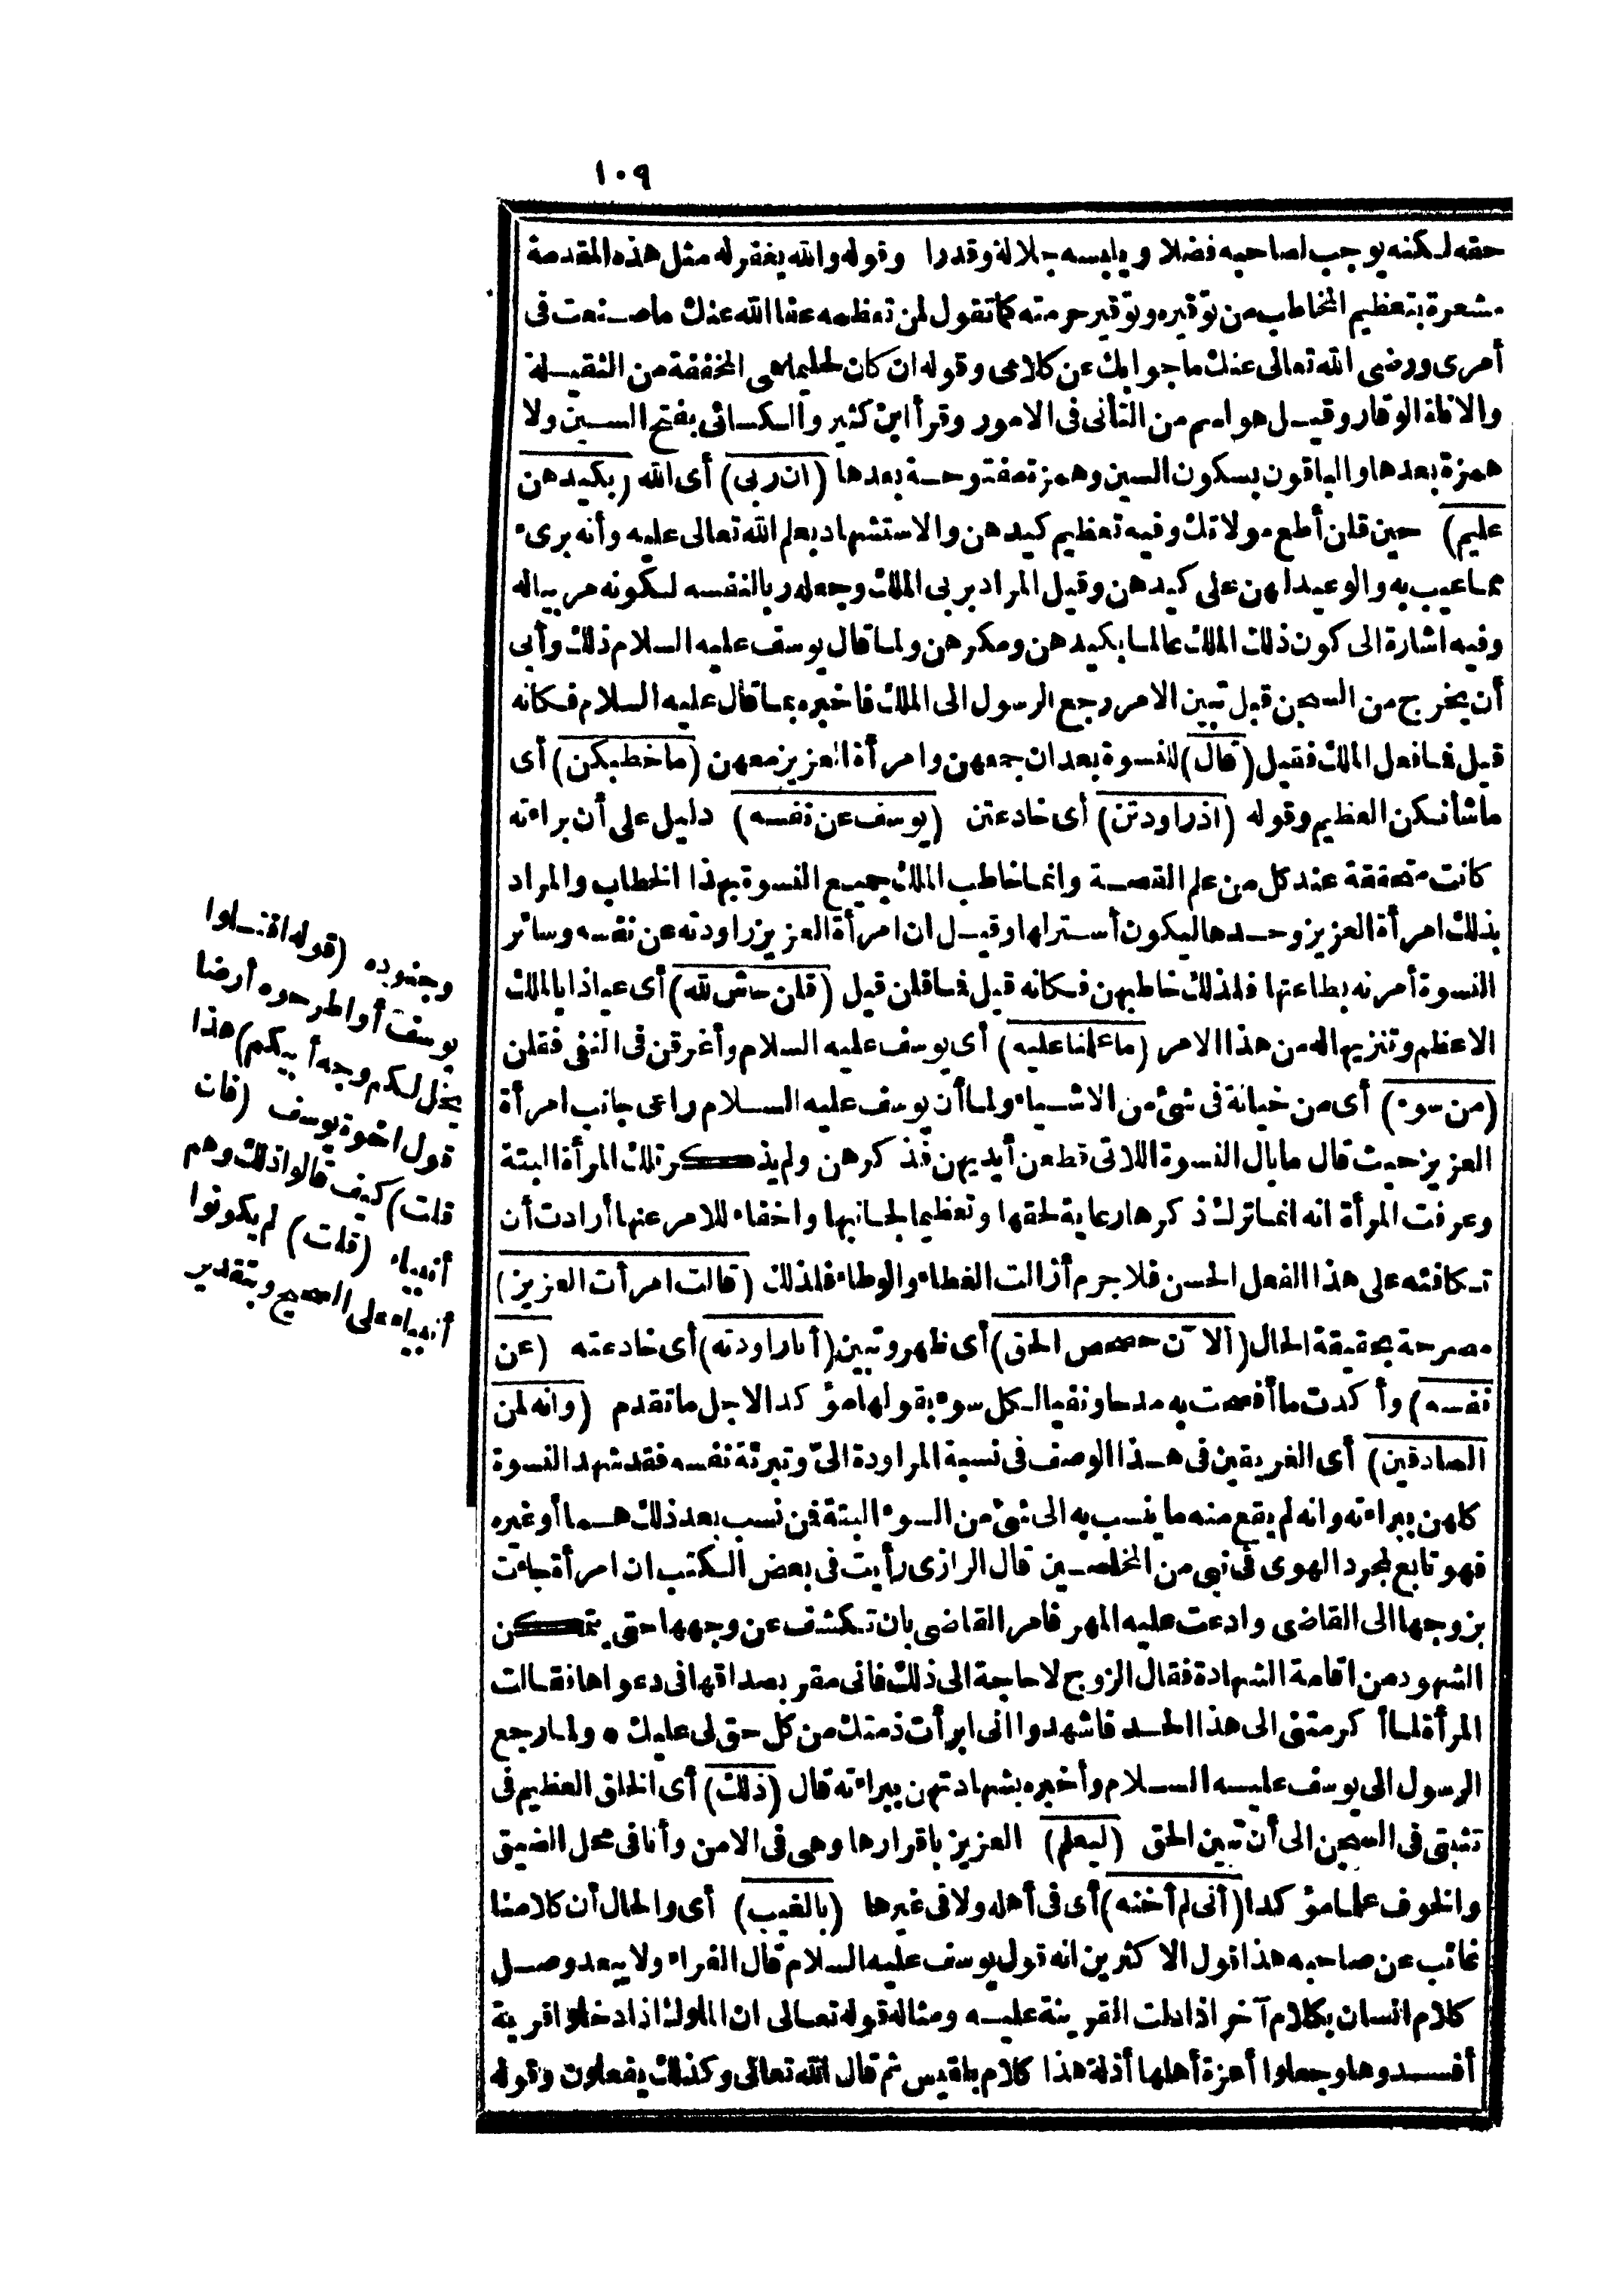 ١٠٩
حقه لكنه يوجب لصاحبه فضلا ويلبسه جلالة وقدرا وقوله والله يغفر له مثل هذه المقدمة
مشعرة بتعظيم المخاطب من توقيره وتوقير حرمته كما تقول لمن تعظمه عفا الله عنك ما صنعت فى
أمرى ورضى الله تعالى عنك ما جوابك عن كلامى وقوله ان كان لحليما هى المخففة من الثقيلة
والاناة الوقار وقيل هو اسم من التأنى فى الامور وقرأ ابن كثير والكسائى بفتح السين ولا
همزة بعدها والباقون بسكون السين وهمزة مفتوحة بعدها (ان ربى) أى الله (بكيدهن
عليم) حين قلن أطع مولاتك وفيه تعظيم كيدهن والاستشهاد بعلم الله تعالى عليه وأنه برىء
مما عيب به والوعيد لهن على كيدهن وقيل المراد بربى الملك وجعله ربا لنفسه لكونه مربيا له
وفيه اشارة الى كون ذلك الملك عالما بكيدهن ومكرهن ولما قال يوسف عليه السلام ذلك وأبى
أن يخرج من السجن قبل تبين الامر رجع الرسول الى الملك فاخبره بما قال عليه السلام فكانه
قيل فما فعل الملك فقيل (قال) للنسوة بعد ان جمعهن وامرأة العزيز معهن (ما خطبكن) أى
ما شأنكن العظيم وقوله (اذ راودتن) أى خادعتن (يوسف عن نفسه) دليل على أن براءته
كانت متحققة عند كل من علم القصة وانما خاطب الملك جميع النسوة بهذا الخطاب والمراد
بذلك امرأة العزيز وحدها ليكون أستر لها وقيل ان امرأة العزيز راودته عن نفسه وسائر
النسوة أمرنه بطاعتها فلذلك خاطبهن فكانه قيل فما قلن قيل (قلن حاش لله) أى عياذا بالملك
الاعظم وتنزيها له من هذا الامر (ما علمنا عليه) أى يوسف عليه السلام وأغرقن فى النفى فقلن
(من سوء) أى من خيانة فى شئ من الاشياء ولما أن يوسف عليه السلام راعى جانب امرأة
العزيز حيث قال ما بال النسوة اللاتى قطعن أيديهن فذكرهن ولم يذكر تلك المرأة البتة
وعرفت المرأة انه انما ترك ذكرها رعاية لحقها وتعظيما لجانبها واخفاء للامر عنها أرادت أن
تكافئه على هذا الفعل الحسن فلا جرم أزالت الغطاء والوطاء فلذلك (قالت امرأت العزيز)
مصرحة بحقيقة الحال (الآن حصحص الحق) أى ظهر وتبين (أنا راودته) أى خادعته (عن
نفسه) وأكدت ما أفصحت به مدحا ونفيا لكل سوء بقولها مؤكدا لاجل ما تقدم (وانه لمن
الصادقين) أى الغريقين فى هذا الوصف فى نسبة المراودة الىّ وتبرئة نفسه فقد شهد النسوة
كلهن ببراءته وانه لم يقع منه ما ينسب به الى شئ من السوء البتة فمن نسب بعد ذلك هما أو غيره
فهو تابع لمجرد الهوى فى نبى من المخلصين قال الرازى رأيت فى بعض الكتب ان امرأة جاءت
بزوجها الى القاضى وادعت عليه المهر فامر القاضى بان تكشف عن وجهها حتى يتمكن
الشهود من اقامة الشهادة فقال الزوج لا حاجة الى ذلك فانى مقر بصداقها فى دعواها فقالت
المرأة لما أكرمتنى الى هذا الحد فاشهدوا انى ابرأت ذمتك من كل حق لى عليك ولما رجع
الرسول الى يوسف عليه السلام وأخبره بشهادتهن ببراءته قال (ذلك) أى الخلق العظيم فى
تثبتى فى السجن الى أن تبين الحق (ليعلم) العزيز باقرارها وهى فى الامن وأنا فى محل الضيق
والخوف علما مؤكدا (أنى لم أخنه) أى فى أهله ولا فى غيرها (بالغيب) أى والحال أن كلا منا
غائب عن صاحبه هذا قول الاكثرين انه قول يوسف عليه السلام قال الفراء ولا يبعد وصل
كلام انسان بكلام آخر اذا دلت القرينة عليه ومثاله قوله تعالى ان الملوك اذا دخلوا قرية
أفسدوها وجعلوا أعزة أهلها أذلة هذا كلام بلقيس ثم قال الله تعالى وكذلك يفعلون وقوله
وجنوبده (قوله اقتلوا
يوسف أو اطرحوه أرضا
يخل لكم وجه أبيكم) هذا
قول اخوة يوسف (فان
قلت) كيف قالوا ذلك وهم
أنبياء (قلت) لم يكونوا
أنبياء على الصحيح وبتقدير